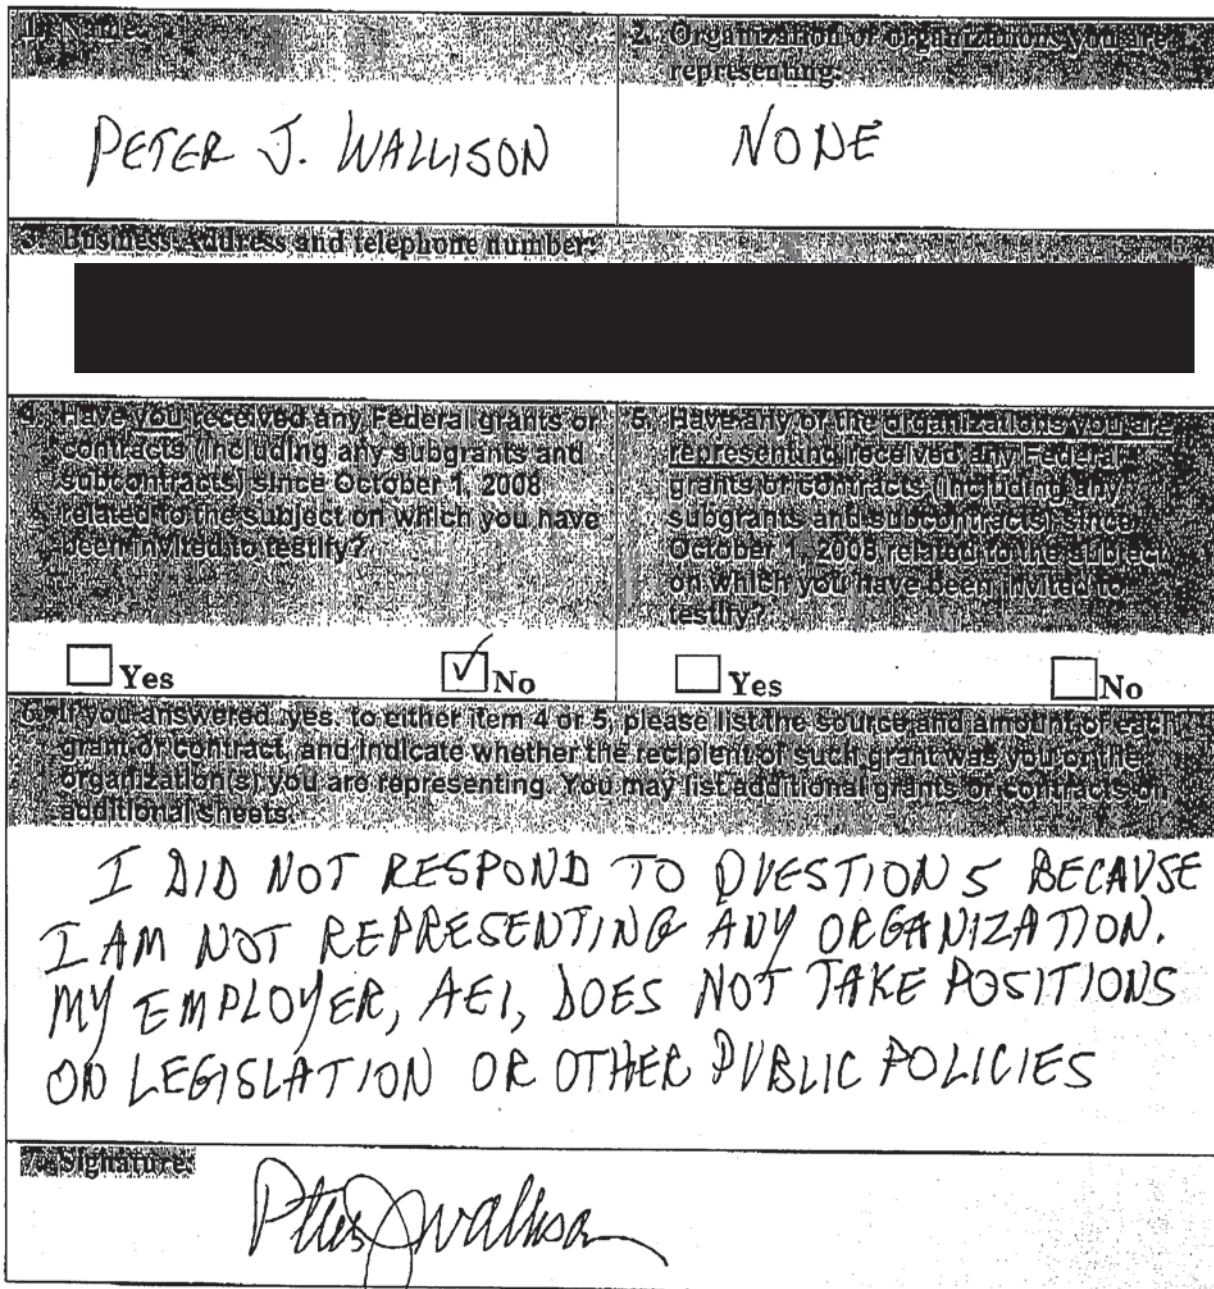 1. Name:
2. Organization or organizations you are
representing:
PETER J. WALLISON
NONE
3. Business Address and telephone number:
4. Have you received any Federal grants or
contracts (including any subgrants and
subcontracts) since October 1, 2008
related to the subject on which you have
been invited to testify?
5. Have any of the organizations you are
representing received any Federal
grants or contracts (including any
subgrants and subcontracts) since
October 1, 2008 related to the subject
on which you have been invited to
testify?
Yes
No
Yes
No
6. If you answered .yes. to either item 4 or 5, please list the source and amount of each
grant or contract, and indicate whether the recipient of such grant was you or the
organization(s) you are representing. You may list additional grants or contracts on
additional sheets.
I DID NOT RESPOND TO QUESTION 5 BECAUSE
I AM NOT REPRESENTING ANY ORGANIZATION.
MY EMPLOYER, AEI, DOES NOT TAKE POSITIONS
ON LEGISLATION OR OTHER PUBLIC POLICIES
7. Signature:
Peter J Wallison